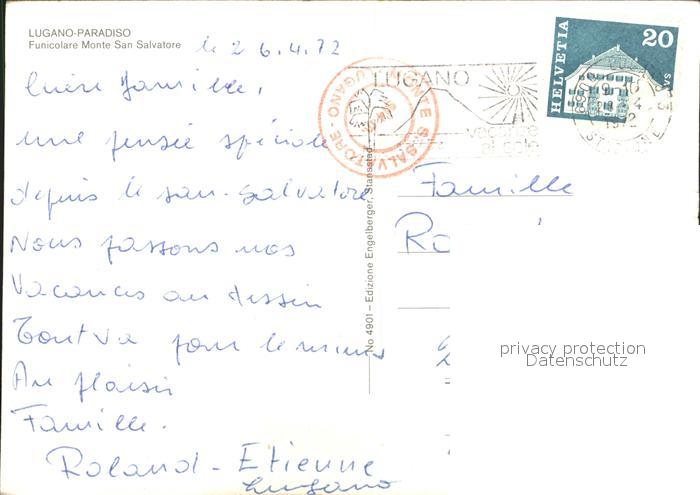 LUGANO-PARADISO
Funicolare Monte San Salvatore
le 26.4.72
Chère famille,
une pensée spéciale
depuis le san-Salvatore
Nous passons nos
Vacances au tessin
Tout va pour le mieux
Au plaisir
Famille.
Roland - Etienne
Lugano
No 4901 – Edizione Engelberger, Stansstad
MONTE S. SALVATORE - LUGANO -
LUGANO
vacanze
al sole
HELVETIA
20
1972
Famille
privacy protection
Datenschutz